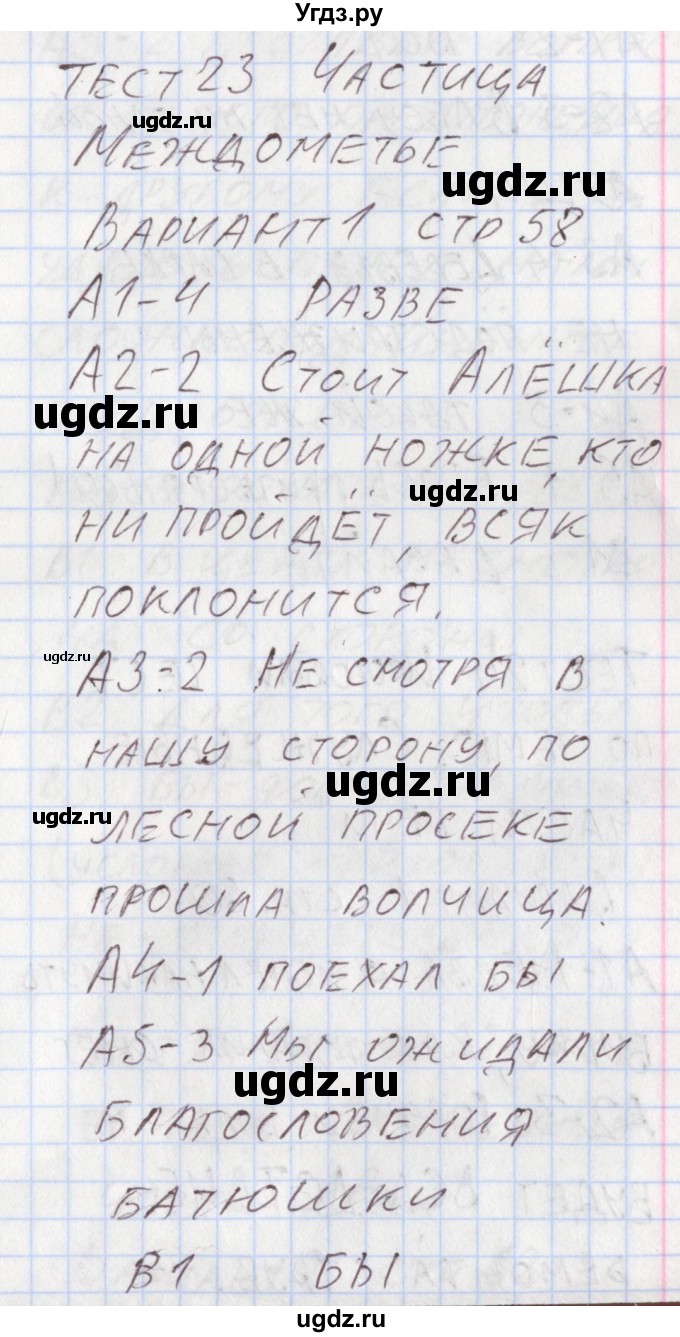 Угдз.ру
ТЕСТ 23 ЧАСТИЦА
ugdz.ru
МЕЖДОМЕТЬЕ
ugdz.ru
ВАРИАНТ 1 СТР 58
А1-4 РАЗВЕ
А2-2 СТОИТ АЛЁШКА
ugdz.ru
НА ОДНОЙ НОЖКЕ, КТО
ugdz.ru
НИ ПРОЙДЁТ, ВСЯК
ПОКЛОНИТСЯ.
ugdz.ru
А3-2 НЕ СМОТРЯ В
НАШУ СТОРОНУ, ПО
ugdz.ru
ugdz.ru
ЛЕСНОЙ ПРОСЕКЕ
ПРОШЛА ВОЛЧИЦА.
А4-1 ПОЕХАЛ БЫ
А5-3 МЫ ОЖИДАЛИ
ugdz.ru
БЛАГОСЛОВЕНИЯ
БАТЮШКИ
В1 БЫ
ugdz.ru